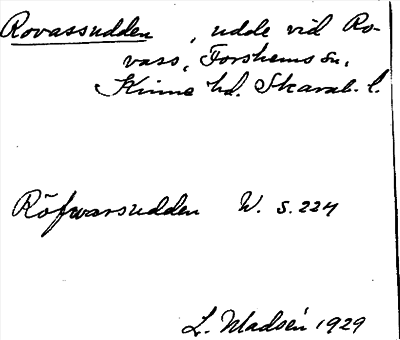 Rovassudden, udde vid Ro-
vass, Forshems sn,
Kinne hd. Skarab. l.
Röfwarsudden W. s. 224
L. Madsén 1929